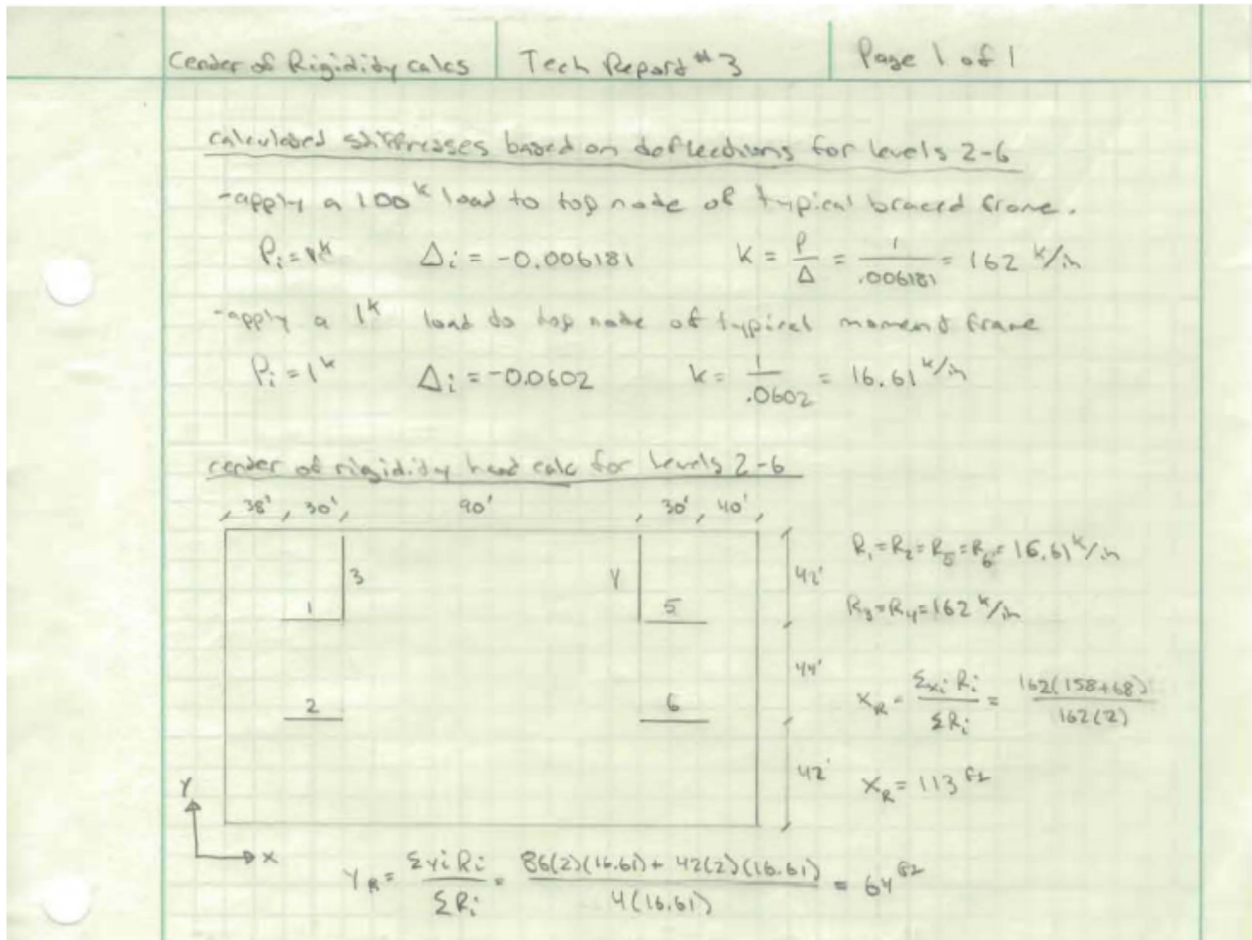 Center of Rigidity calcs Tech Report #3 Page 1 of 1
calculated stiffnesses based on deflections for levels 2-6
-apply a 100ᵏ load to top node of typical braced frame.
Pᵢ = 1ᵏ Δᵢ = -0.006181 K = P/Δ = 1/.006181 = 162 ᵏ/in
-apply a 1ᵏ load to top node of typical moment frame
Pᵢ = 1ᵏ Δᵢ = -0.0602 k = 1/.0602 = 16.61 ᵏ/in
center of rigidity hand calc for levels 2-6
38' 30' 90' 30' 40'
R₁=R₂=R₅=R₆= 16.61 ᵏ/in
3 4 42'
1 5
R₃=R₄=162 ᵏ/in
44'
X_R = Σxᵢ Rᵢ / ΣRᵢ = 162(158+68) / 162(2)
2 6
42' X_R = 113 ft
Y
X
Y_R = ΣYᵢ Rᵢ / ΣRᵢ = 86(2)(16.61) + 42(2)(16.61) / 4(16.61) = 64 ft